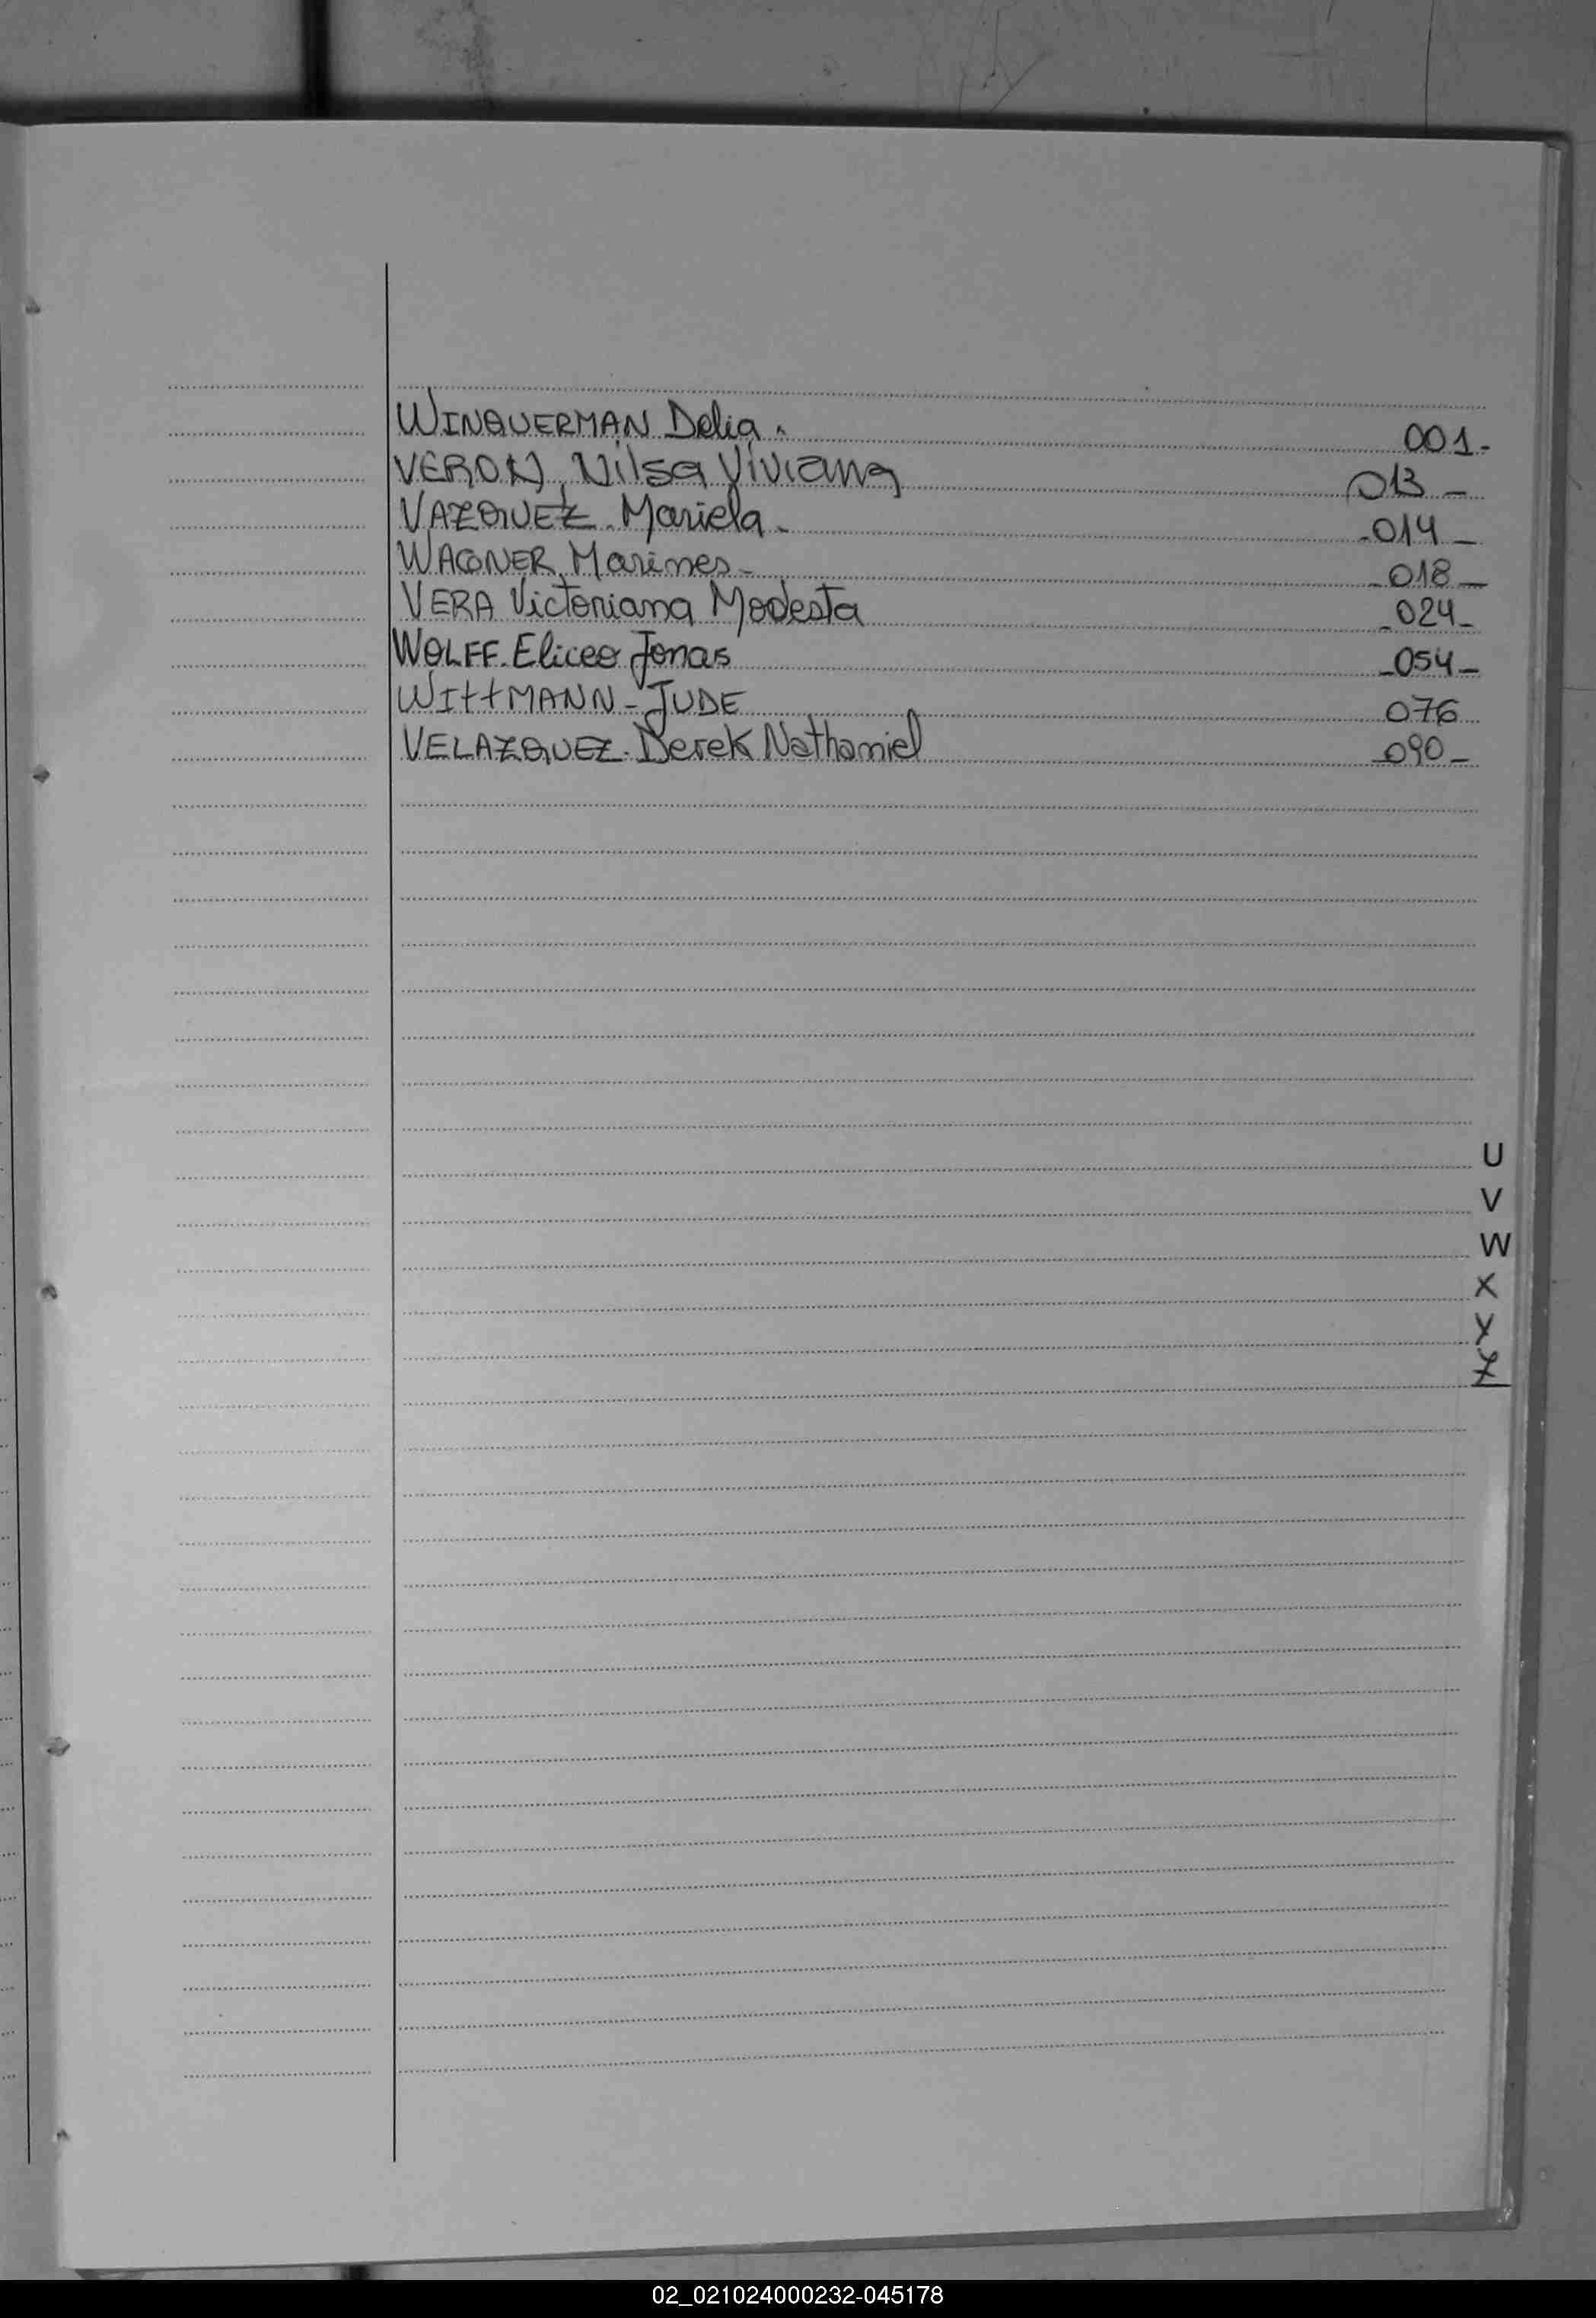 WINQUERMAN Delia. 001-
VERON, Nilsa Viviana 013-
VAZQUEZ. Mariela- -014-
WAGNER, Marines- -018-
VERA Victoriana Modesta -024-
WOLFF. Eliceo Jonas -054-
WITTMANN - JUDE 076
VELAZQUEZ. Derek Nathaniel -090-
U
V
W
X
Y
Z
02_021024000232-045178